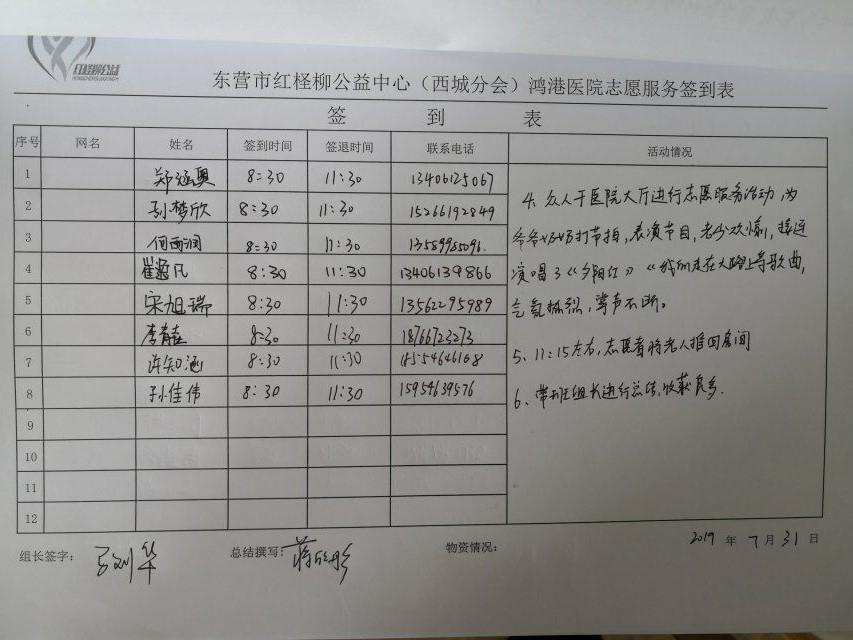 红柽柳公益
东营市红柽柳公益中心（西城分会）鸿港医院志愿服务签到表
签 到 表
序号 网名 姓名 签到时间 签退时间 联系电话 活动情况
1 郑涵奥 8:30 11:30 13406125067
2 孙梦欣 8:30 11:30 15266192849
3 8:30 11:30
4 崔 凡 8:30 11:30 13406139866
5 宋旭瑞 8:30 11:30 13562295989
6 李 8:30 11:30 18766723273
7 许知涵 8:30 11:30
8 孙佳伟 8:30 11:30 15954639576
9
10
11
12
4. 众人于医院大厅进行志愿服务活动,为
爷爷奶奶打节拍,表演节目,老少欢愉,接连
演唱了《夕阳红》《我们走在大路上》等歌曲,
气氛热烈,掌声不断。
5、11:15左右,志愿者将老人推回房间
6、带班组长进行总结,收获良多.
组长签字: 总结撰写: 物资情况:
2019 年 7 月 31 日